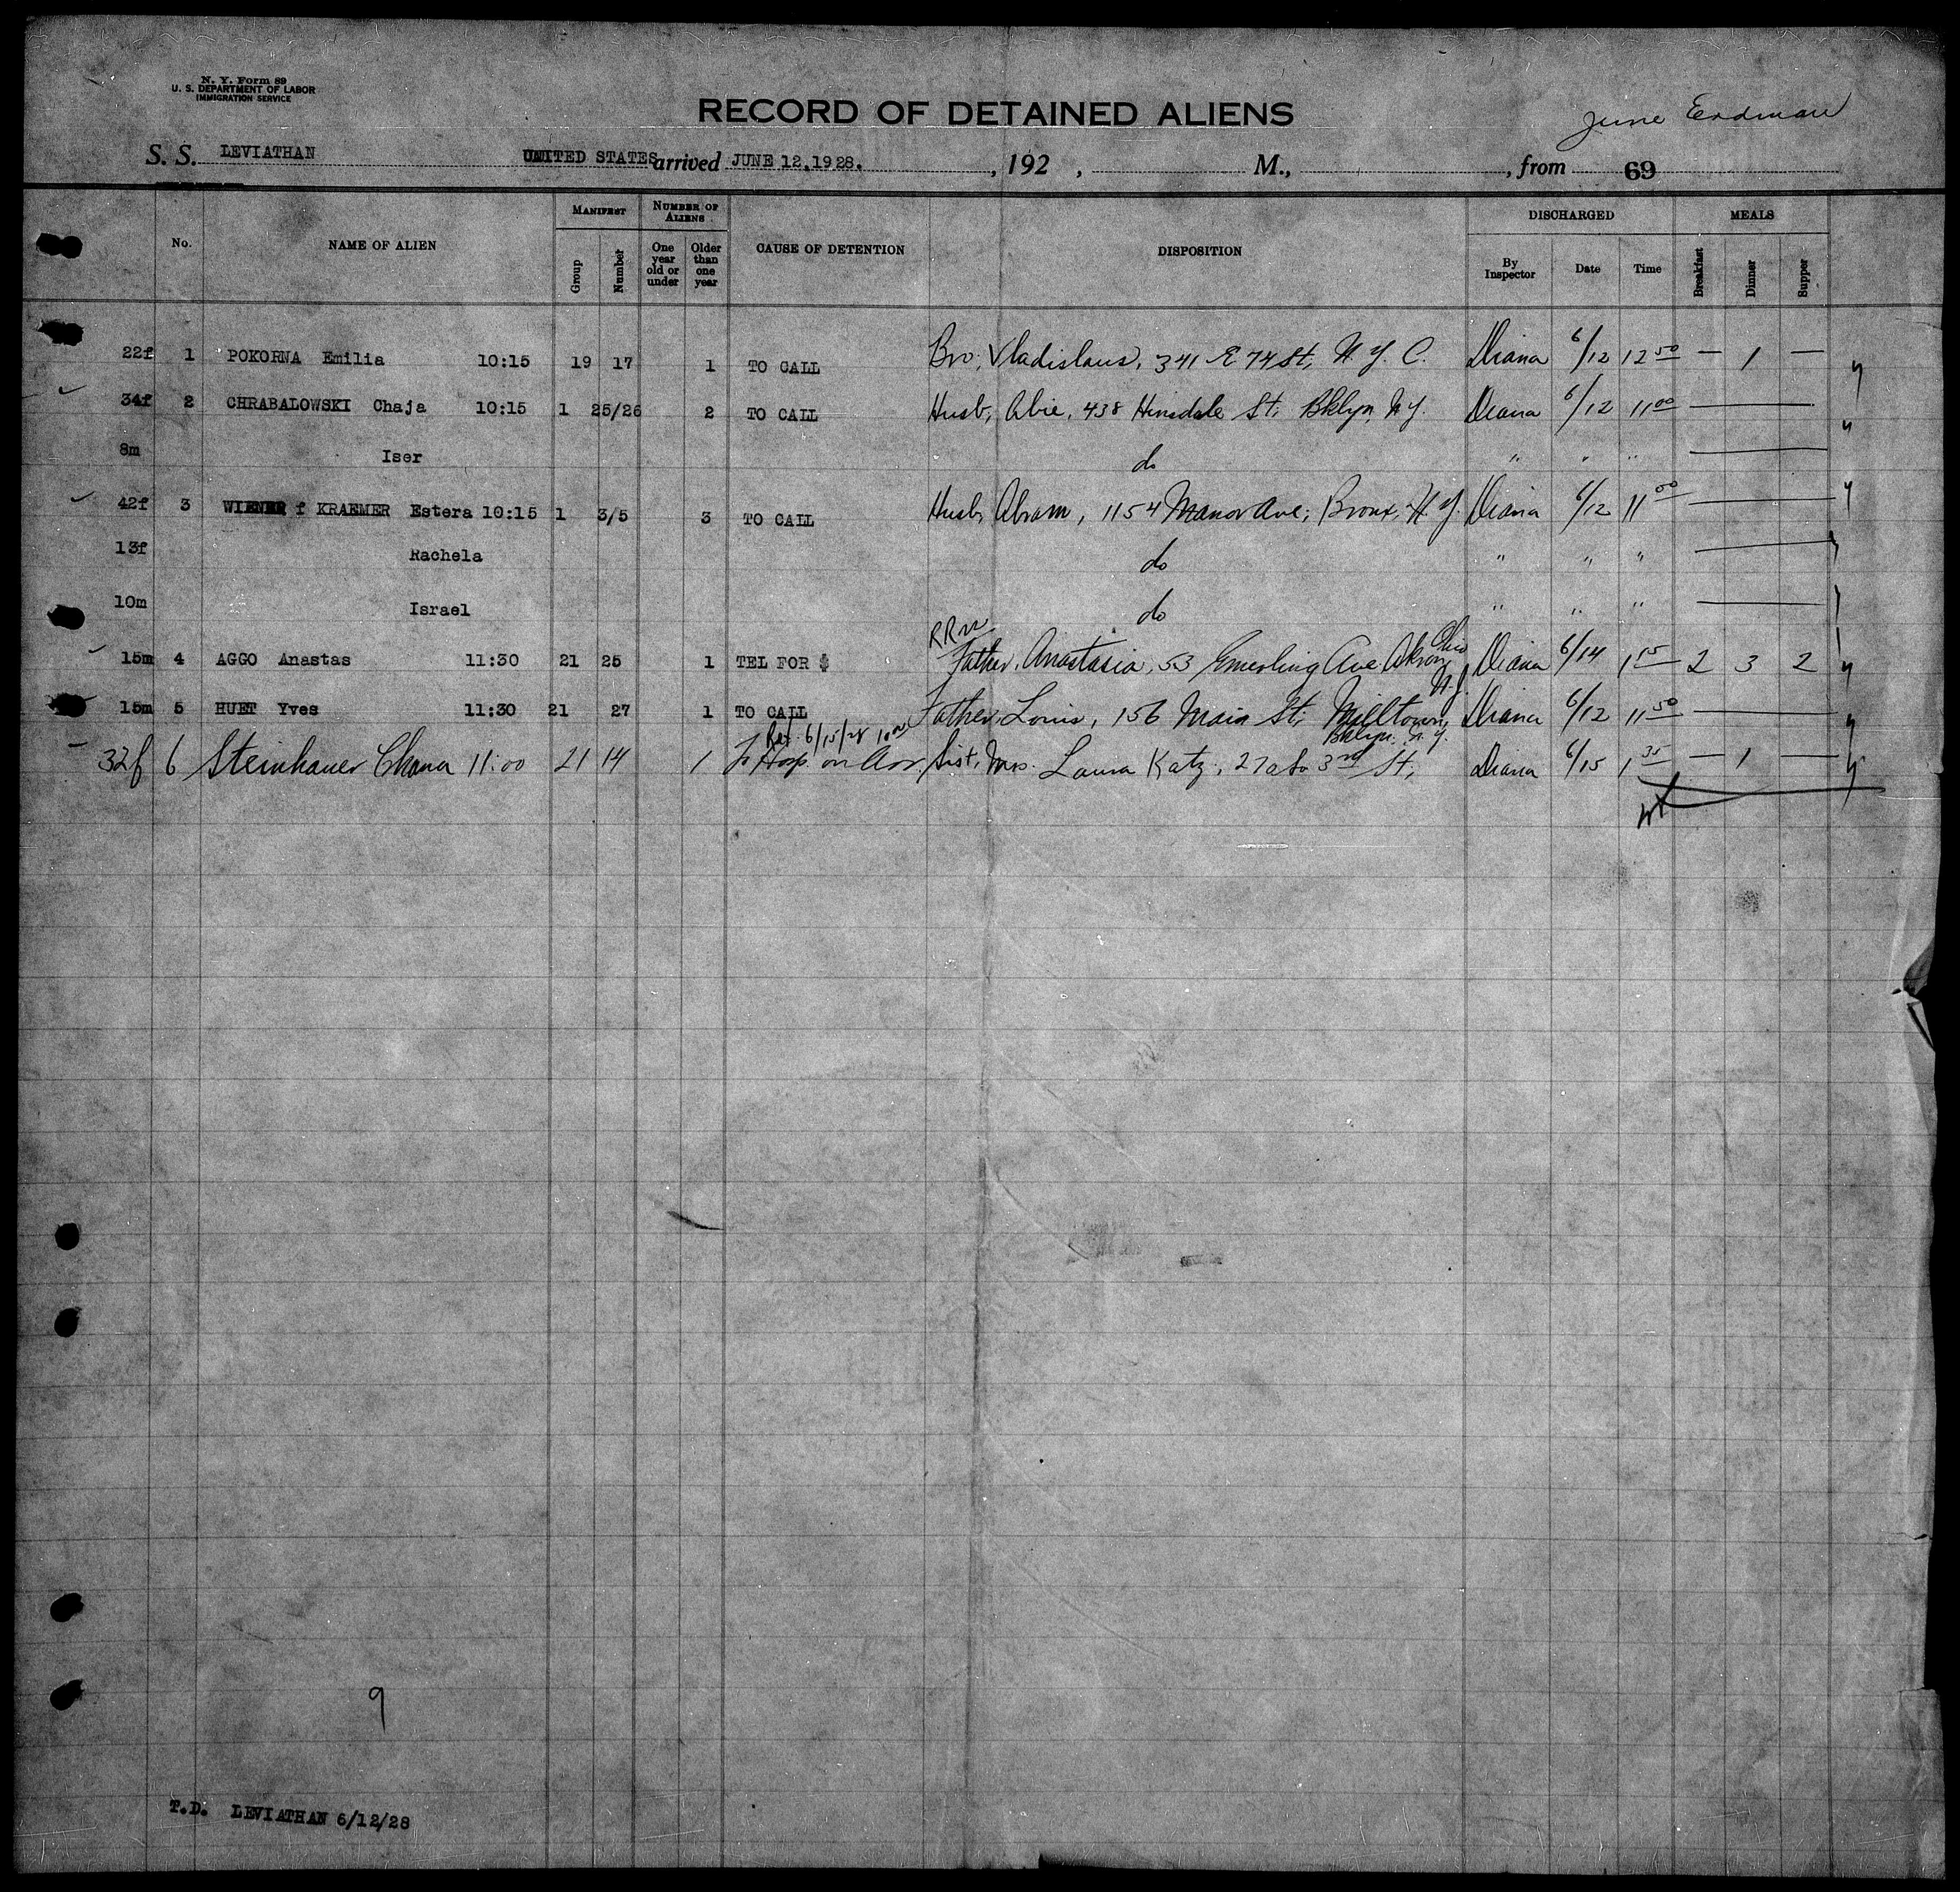 N. Y. Form 89
U. S. DEPARTMENT OF LABOR
IMMIGRATION SERVICE
RECORD OF DETAINED ALIENS
June Erdman
S. S. LEVIATHAN UNITED STATES arrived JUNE 12, 1928. , 192 , M., , from 69
No. NAME OF ALIEN MANIFEST Group Number NUMBER OF ALIENS One year old or under Older than one year CAUSE OF DETENTION DISPOSITION DISCHARGED By Inspector Date Time MEALS Breakfast Dinner Supper
22f 1 POKORNA Emilia 10:15 19 17 1 TO CALL Bro, Vladislaus, 341 E 74 St, N. Y. C. Diana 6/12 12 50 — 1 —
34f 2 CHRABALOWSKI Chaja 10:15 1 25/26 2 TO CALL Husb, Abie, 438 Hinsdale St, Bklyn, N.Y. Diana 6/12 11 00
8m Iser do " " "
42f 3 WIENER f KRAEMER Estera 10:15 1 3/5 3 TO CALL Husb, Abram, 1154 Manor Ave, Bronx, N.Y. Diana 6/12 11 00
13f Rachela do " " "
10m Israel do " " "
RR
15m 4 AGGO Anastas 11:30 21 25 1 TEL FOR $ Father, Anastasia, 53 Emerling Ave Akron, Ohio Diana 6/14 1 15 2 3 2
15m 5 HUET Yves 11:30 21 27 1 TO CALL Father, Louis, 156 Main St, Milltown, N.J. Diana 6/12 11 50
6/15/28
32f 6 Steinhauer Chana 11:00 21 14 1 To Hosp. on Arr Sist, Mrs. Laura Katz, 3rd St, Bklyn. N.Y. Diana 6/15 1 35 — 1 —
9
T.D. LEVIATHAN 6/12/28